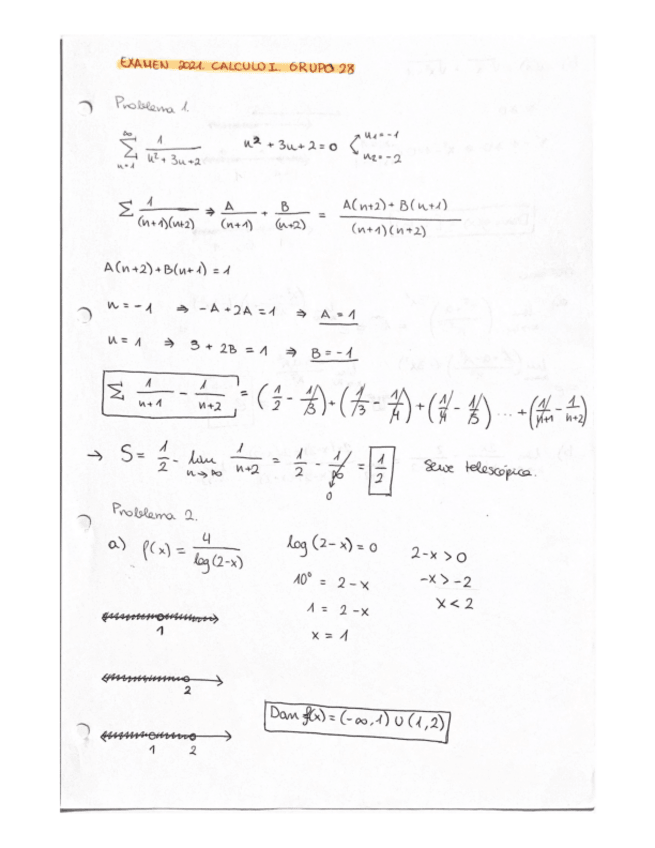 EXAMEN 2021. CALCULO I. GRUPO 28
Problema 1.
∞ ∑ n=1 1/(n²+3n+2)    n² + 3n + 2 = 0    n1 = -1
n2 = -2
∑ 1/((n+1)(n+2)) ⇒ A/(n+1) + B/(n+2) = (A(n+2) + B(n+1))/((n+1)(n+2))
A(n+2) + B(n+1) = 1
n = -1 ⇒ -A + 2A = 1 ⇒ A = 1
n = 1 ⇒ 3 + 2B = 1 ⇒ B = -1
∑ 1/(n+1) - 1/(n+2) = (1/2 - 1/3) + (1/3 - 1/4) + (1/4 - 1/5) ... + (1/(n+1) - 1/(n+2))
→ S = 1/2 - lim n→∞ 1/(n+2) = 1/2 - 1/∞ = 1/2    Serie telescópica.
0
Problema 2.
a) f(x) = 4/log(2-x)    log(2-x) = 0    2-x > 0
10⁰ = 2-x    -x > -2
1 = 2-x    x < 2
x = 1
1
2
Dom f(x) = (-∞, 1) ∪ (1, 2)
1 2